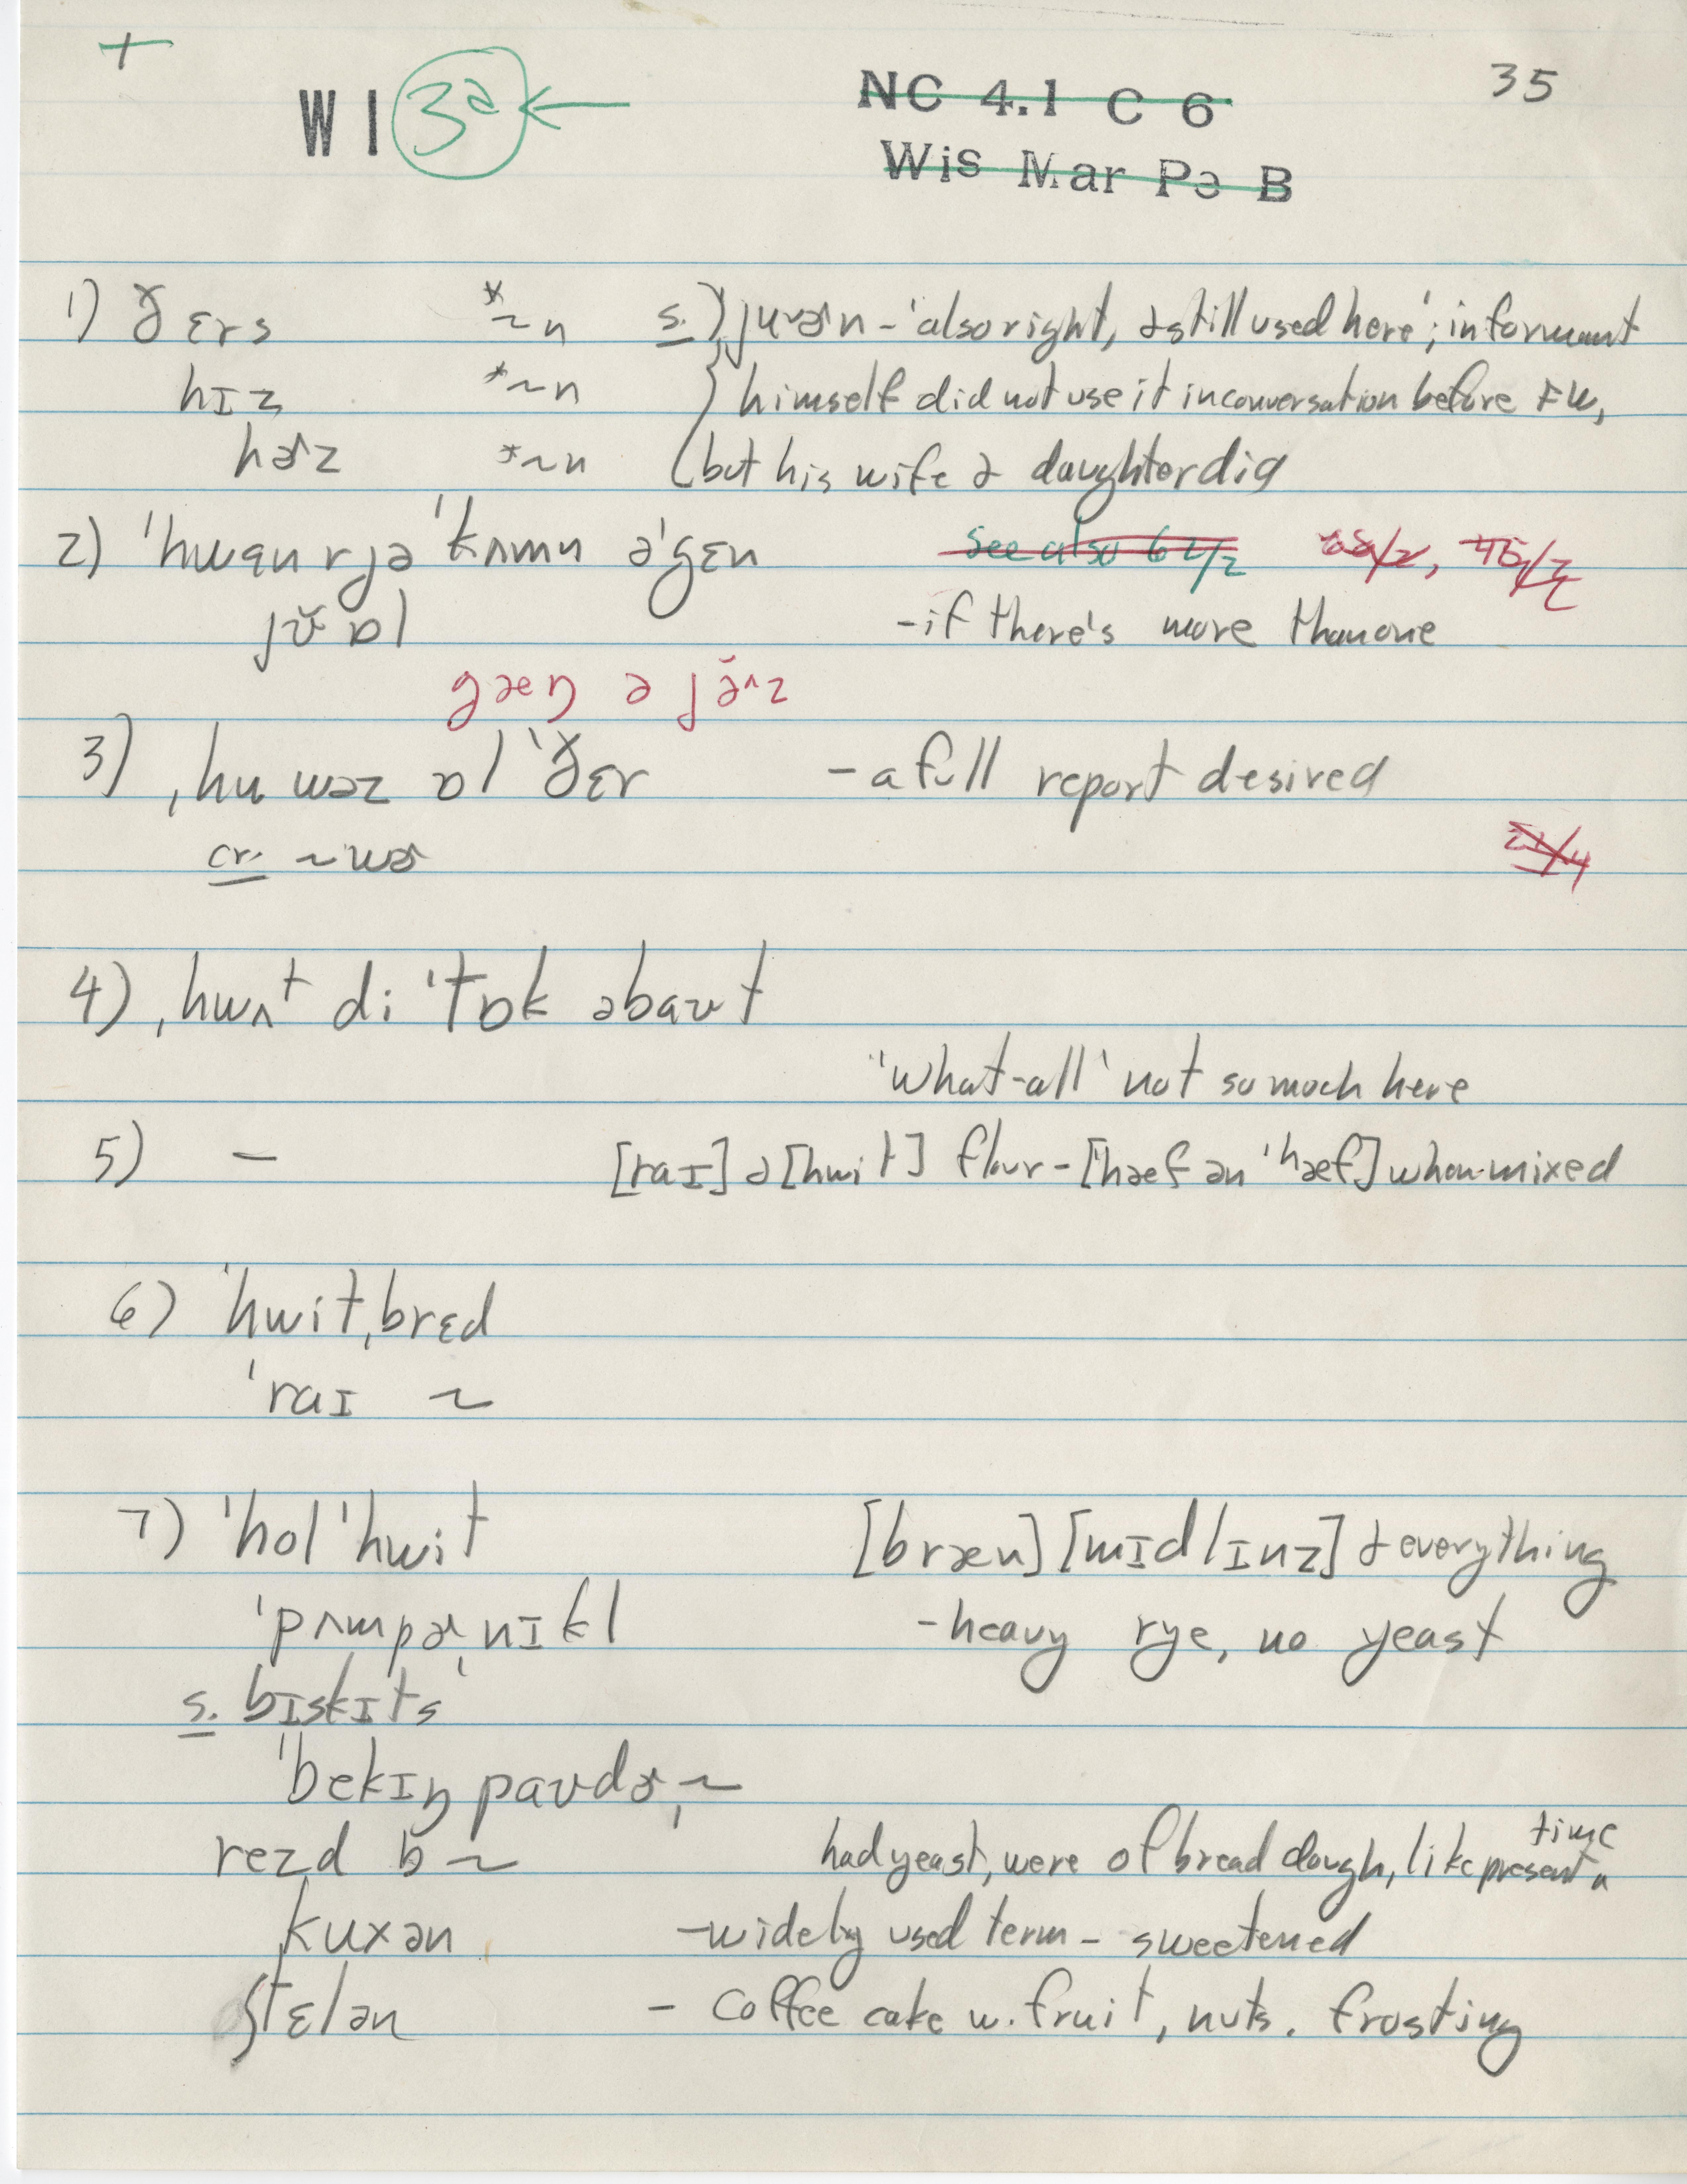 +
WI 3a ←
NC 4.1 C 6
35
Wis Mar Pa B
1) ðɛrs *~n s. juɚn - 'also right, & still used here'; informant
hɪz *~n himself did not use it in conversation before FW,
hɚz *~n but his wife & daughter did
2) 'hwɛn rjə 'kʌmn ə'gɛn see also 64/2
jʊ̆ ɒl - if there's more than one
gæŋ ə jə̆^z
3) ˌhu wəz ɒl 'ðɛr - a full report desired
cr. ~ wɚ
4) ˌhwʌt di 'tɒk əbaʊt
'what-all' not so much here
5) — [raɪ] & [hwit] flour - [hæf ən 'hæf] when mixed
6) 'hwitˌbrɛd
'raɪ ~
7) 'hol 'hwit [bræn] [mɪdlɪnz] & everything
'pʌmpɚˌnɪkl - heavy rye, no yeast
s. bɪskɪts
'bekɪŋ paʊdɚˌ~
rezd b~ had yeast, were of bread dough, like present time
kuxən - widely used term - sweetened
ʃtɛlən - coffee cake w. fruit, nuts. frosting